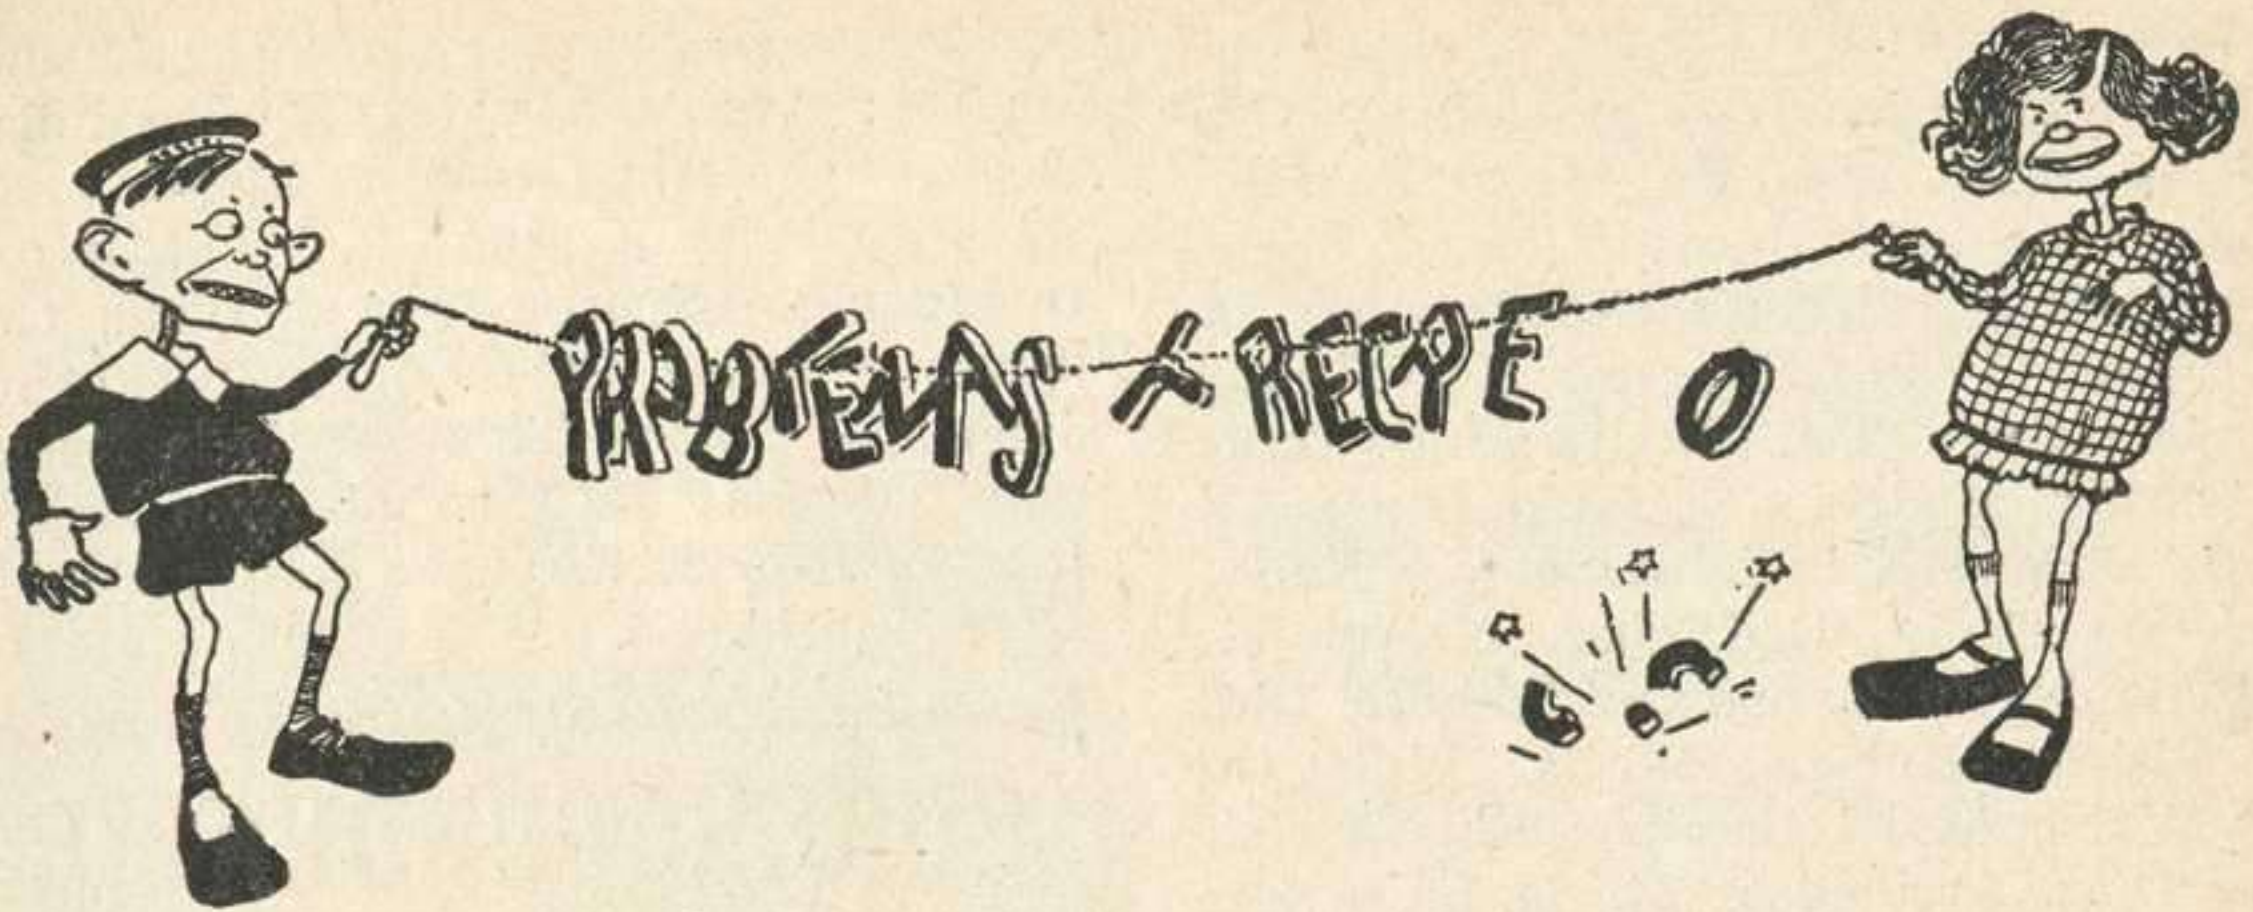 PROBLEMAS Y RECREO